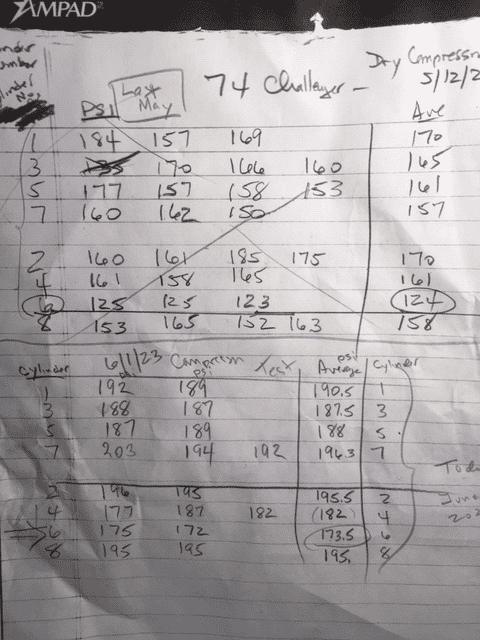 AMPAD
Cylinder Number
Cylinder No.
PSI
Last May
74 Challenger –
Dry Compression
5/12/2
Ave
1 184 157 169 170
3 170 166 160 165
5 177 157 158 153 161
7 160 162 150 157
2 160 161 185 175 170
4 161 158 165 161
6 125 125 123 124
8 153 165 152 163 158
Cylinder 6/1/23 Compression Test psi Average Cylinder
psi
1 192 189 190.5 1
3 188 187 187.5 3
5 187 189 188 5
7 203 194 192 196.3 7
2 196 195 195.5 2
4 177 187 182 (182) 4
6 175 172 173.5 6
8 195 195 195. 8